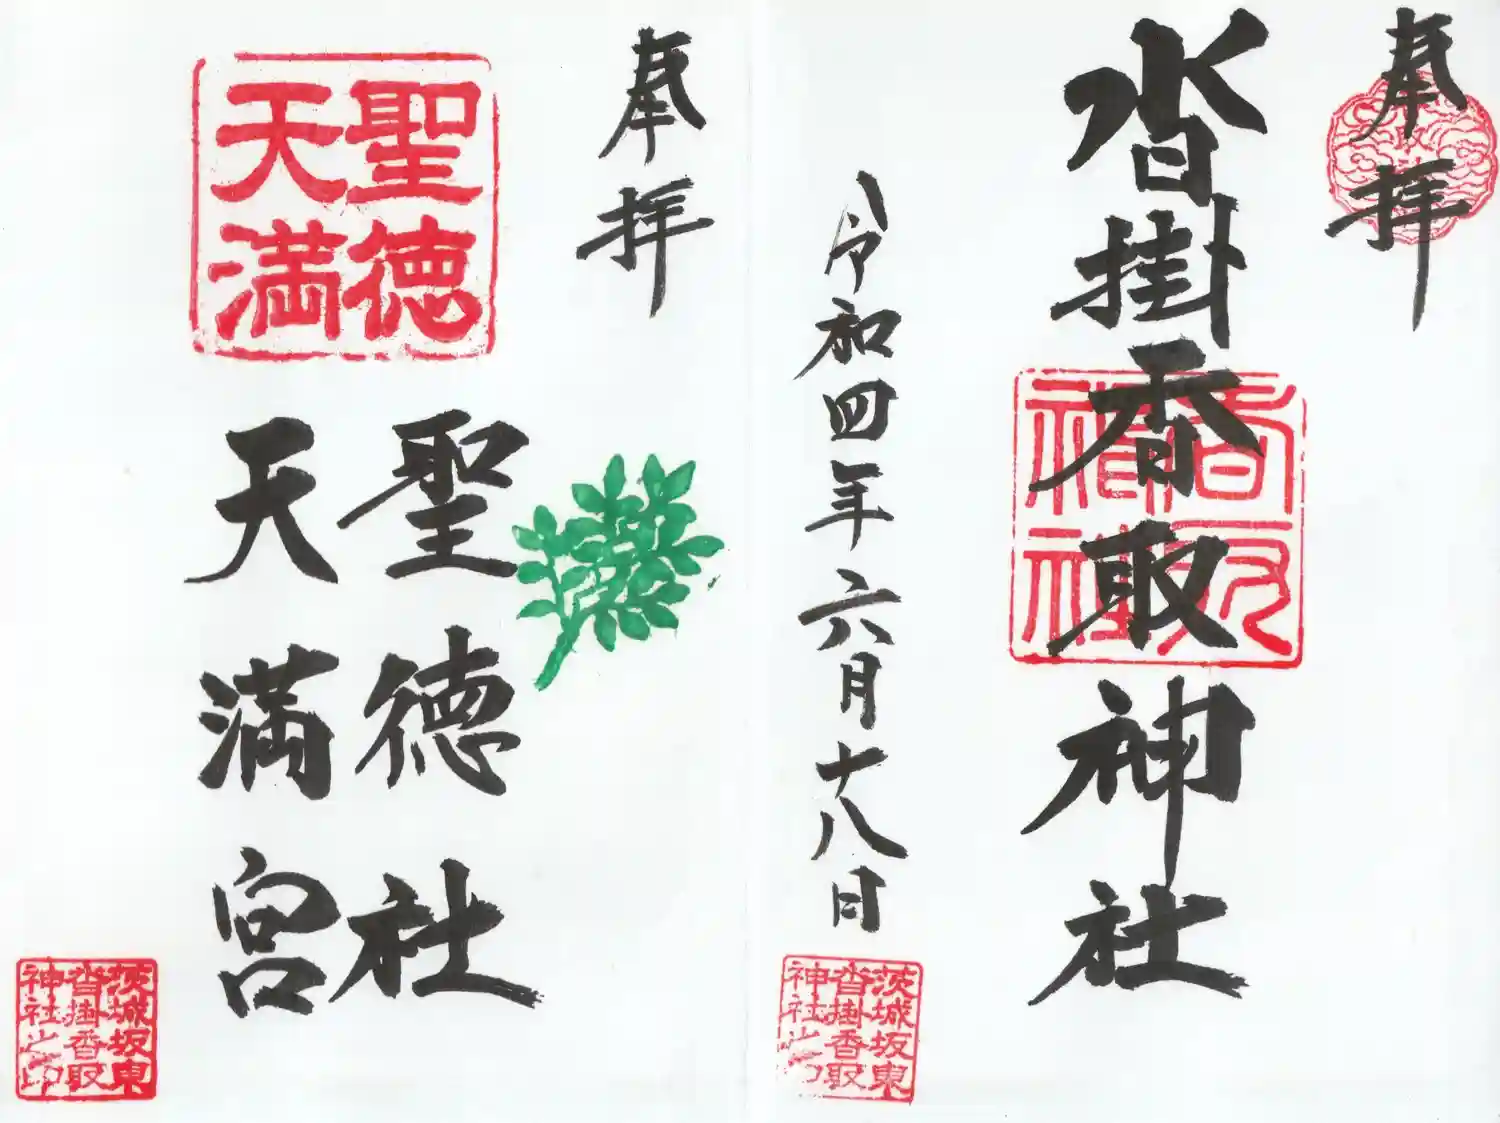 奉拝
沓掛香取神社
香取神社
令和四年六月十八日
茨城坂東
沓掛香取
神社之印
奉拝
聖徳
天満
聖徳社
天満宮
茨城坂東
沓掛香取
神社之印